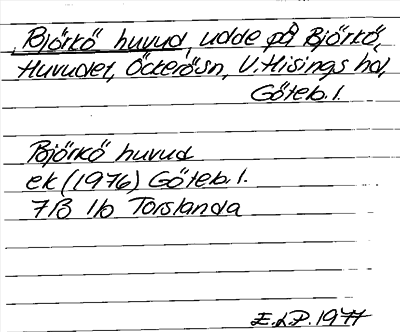 Björkö huvud, udde på Björkö,
Huvudet, Öckerö sn, V. Hisings hd,
Göteb. l.
Björkö huvud
ek (1976) Göteb. l.
7B 1b Torslanda
E.L.P. 1977